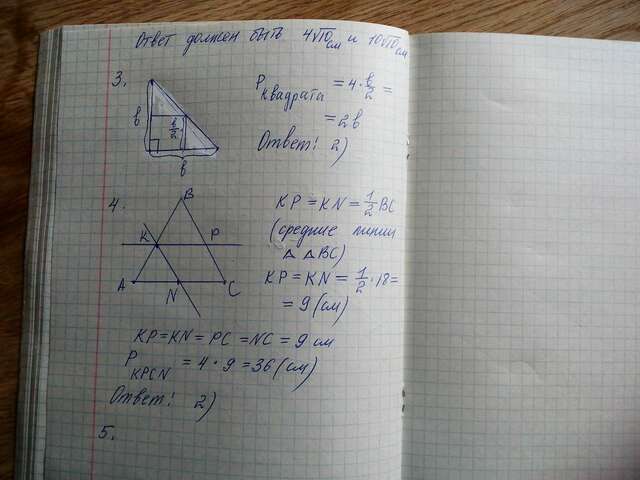 Ответ должен быть 4√10 см и 10√10 см
3.
в
в/2
в
P квадрата = 4 · в/2 =
= 2в
Ответ: 2)
4.
B
K
P
A
N
C
KP = KN = 1/2 BC
(средние линии
△ ABC)
KP = KN = 1/2 · 18 =
= 9 (см)
KP = KN = PC = NC = 9 см
P KPCN = 4 · 9 = 36 (см)
Ответ: 2)
5.